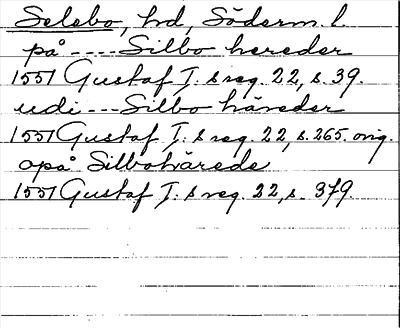 Selebo, hd, Söderm. l.
på ---- Silbo hereder
1551 Gustaf I:s reg. 22, s. 39.
udi --- Silbo häreder
1551 Gustaf I:s reg. 22, s. 265. orig.
opå Silbohärede
1551 Gustaf I:s reg. 22, s. 379.